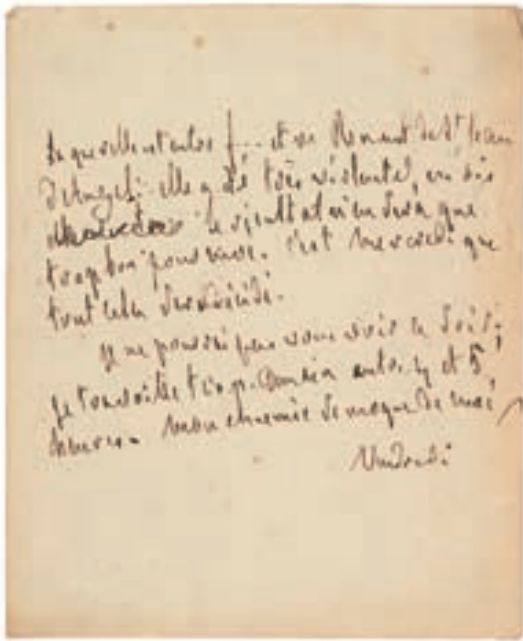 La querelle est entre J... et ce Renaud de St Jean
d'Angely. elle a été très violente,
le résultat n'en sera que
trop bon pour nous. C'est mercredi que
tout cela sera décidé.
Je ne pourrai pas vous voir ce soir;
je travaille trop. Demain entre 4 et 5
heures. Mon ennemie se moque de moi
Vendredi